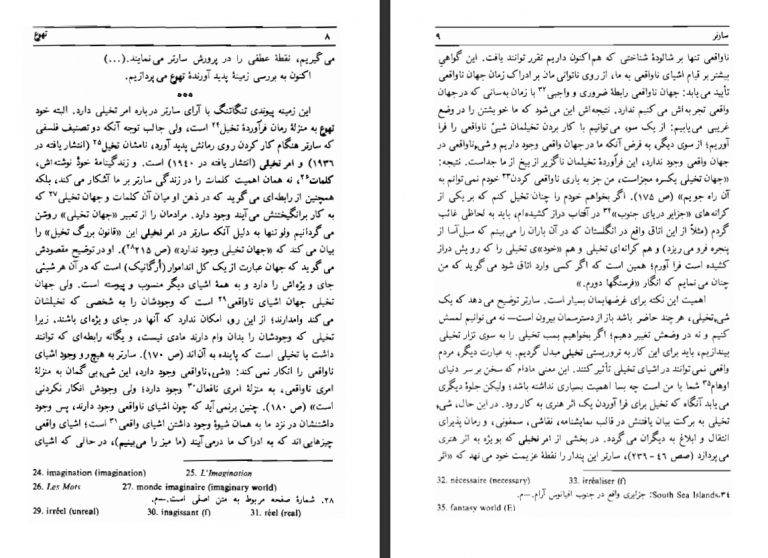 ۸ تهوع
می‌گیریم، نقطهٔ عطفی را در پرورش سارتر می‌نمایند.(...)
اکنون به بررسی زمینهٔ پدید آورندهٔ تهوع می‌پردازیم.
***
این زمینه پیوندی تنگاتنگ با آرای سارتر درباره امر تخیلی دارد. البته خود
تهوع به منزلهٔ رمان فرآوردهٔ تخیل۲۴ است، ولی جالب توجه آنکه دو تصنیف فلسفی
که سارتر هنگام کار کردن روی رمانش پدید آورد، نامشان تخیل۲۵ (انتشار یافته در
۱۹۳۶) و امر تخیلی (انتشار یافته در ۱۹۴۰) است. و زندگینامهٔ خود نوشته‌اش،
کلمات۲۶، نه همان اهمیت کلمات را در زندگی سارتر بر ما آشکار می‌کند، بلکه
همچنین از رابطه‌ای می‌گوید که در ذهن او میان آن کلمات و جهان تخیلی۲۷ که
به کار برانگیختنش می‌آیند وجود دارد. مرادمان را از تعبیر «جهان تخیلی» روشن
می‌گردانیم ولو تنها به دلیل آنکه سارتر در امر تخیلی این «قانون بزرگ تخیل» را
بیان می‌کند که «جهان تخیلی وجود ندارد» (ص ۲۱۵)۲۸. او در توضیح مقصودش
می‌گوید که جهان عبارت از یک کل اندام‌وار (اُرگانیک) است که در آن هر شیئی
جای و یژه‌اش را دارد و به همهٔ اشیای دیگر منسوب و پیوسته است. ولی جهان
تخیلی جهان اشیای ناواقعی۲۹ است که وجودشان را به شخصی که تخیلشان
می‌کند وامدارند؛ از این رو، امکان ندارد که آنها در جای و یژه‌ای باشند. زیرا
تخیلی که وجودشان را بدان وام دارند مادی نیست، و یگانه رابطه‌ای که توانند
داشت با تخیلی است که پاینده به آن‌اند (ص ۱۷۰). سارتر به هیچ‌رو وجود اشیای
ناواقعی را انکار نمی‌کند: «شیء ناواقعی وجود دارد، این شیء بی‌گمان به منزلهٔ
امری ناواقعی، به منزلهٔ امری نافعال۳۰ وجود دارد؛ ولی وجودش انکار نکردنی
است» (ص ۱۸۰). چنین برنمی‌آید که چون اشیای ناواقعی وجود دارند، پس وجود
داشتنشان در نزد ما به همان شیوهٔ وجود داشتن اشیای واقعی۳۱ است؛ اشیای واقعی
چیزهایی‌اند که به ادراک ما درمی‌آیند (ما میز را می‌بینیم)، در حالی که اشیای
24. imagination (imagination) 25. L'Imagination
26. Les Mots 27. monde imaginaire (imaginary world)
۲۸. شمارهٔ صفحه مربوط به متن اصلی است.ــ م.
29. irréel (unreal) 30. inagissant (f) 31. réel (real)
سارتر ۹
ناواقعی تنها بر شالودهٔ شناختی که هم‌اکنون داریم تقرر توانند یافت. این گواهی
بیشتر بر قیام اشیای ناواقعی به ما، از روی ناتوانی مان بر ادراک زمان جهان ناواقعی
تأیید می‌یابد: جهان ناواقعی رابطهٔ ضروری و واجبی۳۲ با زمان به‌سانی که در جهان
واقعی تجربه‌اش می‌کنیم ندارد. نتیجه‌اش این می‌شود که ما خویشتن را در وضع
غریبی می‌یابیم: از یک سو، می‌توانیم با کار بردن تخیلمان شیئی ناواقعی را فرا
آوریم؛ از سوی دیگر، به فرض آنکه ما در جهان واقعی وجود داریم و شیء ناواقعی در
جهان واقعی وجود ندارد، این فرآوردهٔ تخیلمان ناگزیر از بیخ از ما جداست. نتیجه:
«جهان تخیلی یکسره مجزاست، من جز به یاری ناواقعی کردن۳۳ خودم نمی‌توانم به
آن راه جویم» (ص ۱۷۵). اگر بخواهم خودم را چنان تخیل کنم که بر یکی از
کرانه‌های «جزایر دریای جنوب»۳۴ در آفتاب دراز کشیده‌ام، باید به لحاظی غائب
گردم (مثلاً از این اتاق واقع در انگلستان که در آن باران را می‌بینم که سیل‌آسا از
پنجره فرو می‌ریزد) و هم کرانه‌ای تخیلی و هم «خود»ی تخیلی را که رویش دراز
کشیده است فرا آورم؛ همین است که اگر کسی وارد اتاق شود می‌گوید که من
چنان می‌نمایم که انگار «فرسنگها دورم.»
اهمیت این نکته برای غرضهایمان بسیار است. سارتر توضیح می‌دهد که یک
شیء تخیلی، هر چند حاضر باشد باز از دسترسمان بیرون است ــ نه می‌توانیم لمسش
کنیم و نه در وضعش تغییر دهیم؛ اگر بخواهیم بمب تخیلی را به سوی تزار تخیلی
بیندازیم، باید برای این کار به تروریستی تخیلی مبدل گردیم. به عبارت دیگر، مردم
واقعی نمی‌توانند در اشیای تخیلی تأثیر کنند. این معنی مادام که سخن بر سر دنیای
اوهام۳۵ شما یا من است چه بسا اهمیت بسیاری نداشته باشد؛ ولیکن جلوهٔ دیگری
می‌یابد آنگاه که تخیل برای فرا آوردن یک اثر هنری به کار رود. در این حال، شیء
تخیلی به برکت بیان یافتنش در قالب نمایشنامه، نقاشی، سمفونی، و رمان پذیرای
انتقال و ابلاغ به دیگران می‌گردد. در بخشی از امر تخیلی که بو یژه به اثر هنری
می‌پردازد (صص ۴۶-۲۳۹)، سارتر این پندار را نقطهٔ عزیمت خود می‌نهد که «اثر
32. nécessaire (necessary) 33. irréaliser (f)
۳۴. South Sea Islands: جزایری واقع در جنوب اقیانوس آرام.ــ م.
35. fantasy world (E)